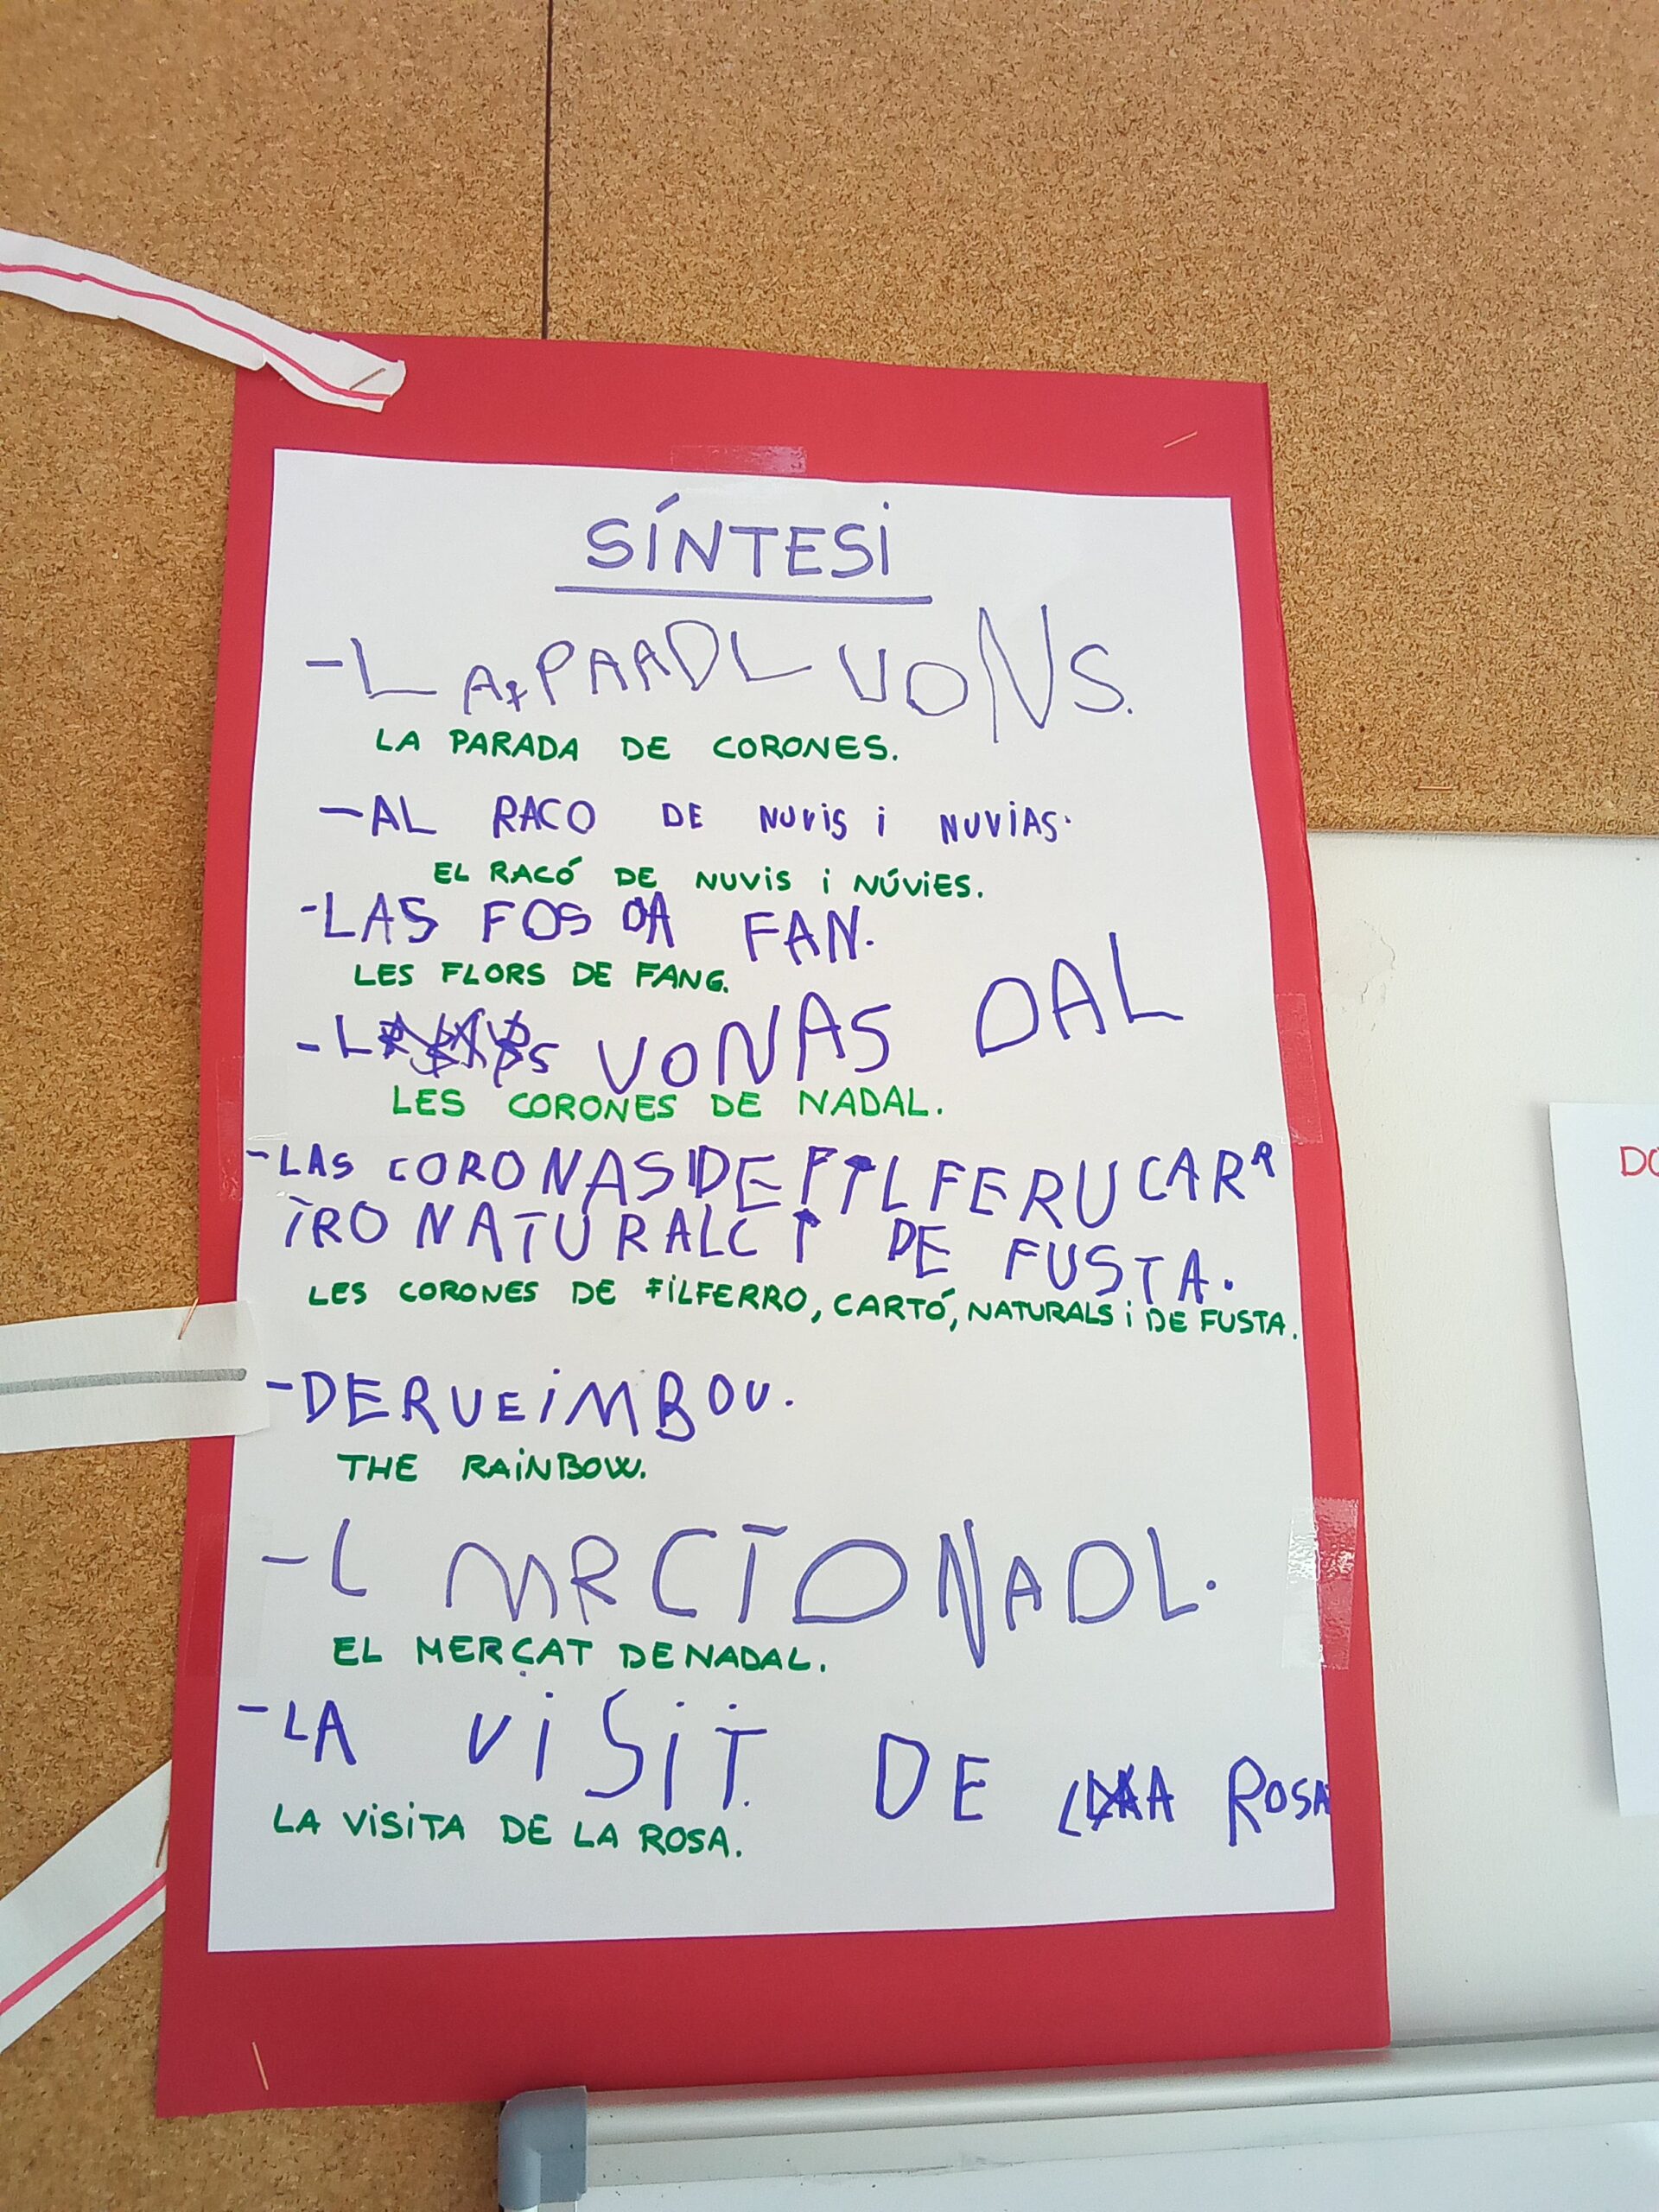 SÍNTESI
-L A PAADL VONS.
LA PARADA DE CORONES.
-AL RACO DE NUVIS i NUVIAS.
EL RACÓ DE NUVIS i NÚVIES.
-LAS FOS DA FAN.
LES FLORS DE FANG.
- VONAS DAL
LES CORONES DE NADAL.
-LAS CORONAS DE FILFERU CAR
TRO NATURALC I DE FUSTA.
LES CORONES DE FILFERRO, CARTÓ, NATURALS i DE FUSTA.
-DERUEIMBOU.
THE RAINBOW.
-L MRCTDNADL.
EL MERCAT DE NADAL.
-LA VISIT DE LA ROSA
LA VISITA DE LA ROSA.
DO